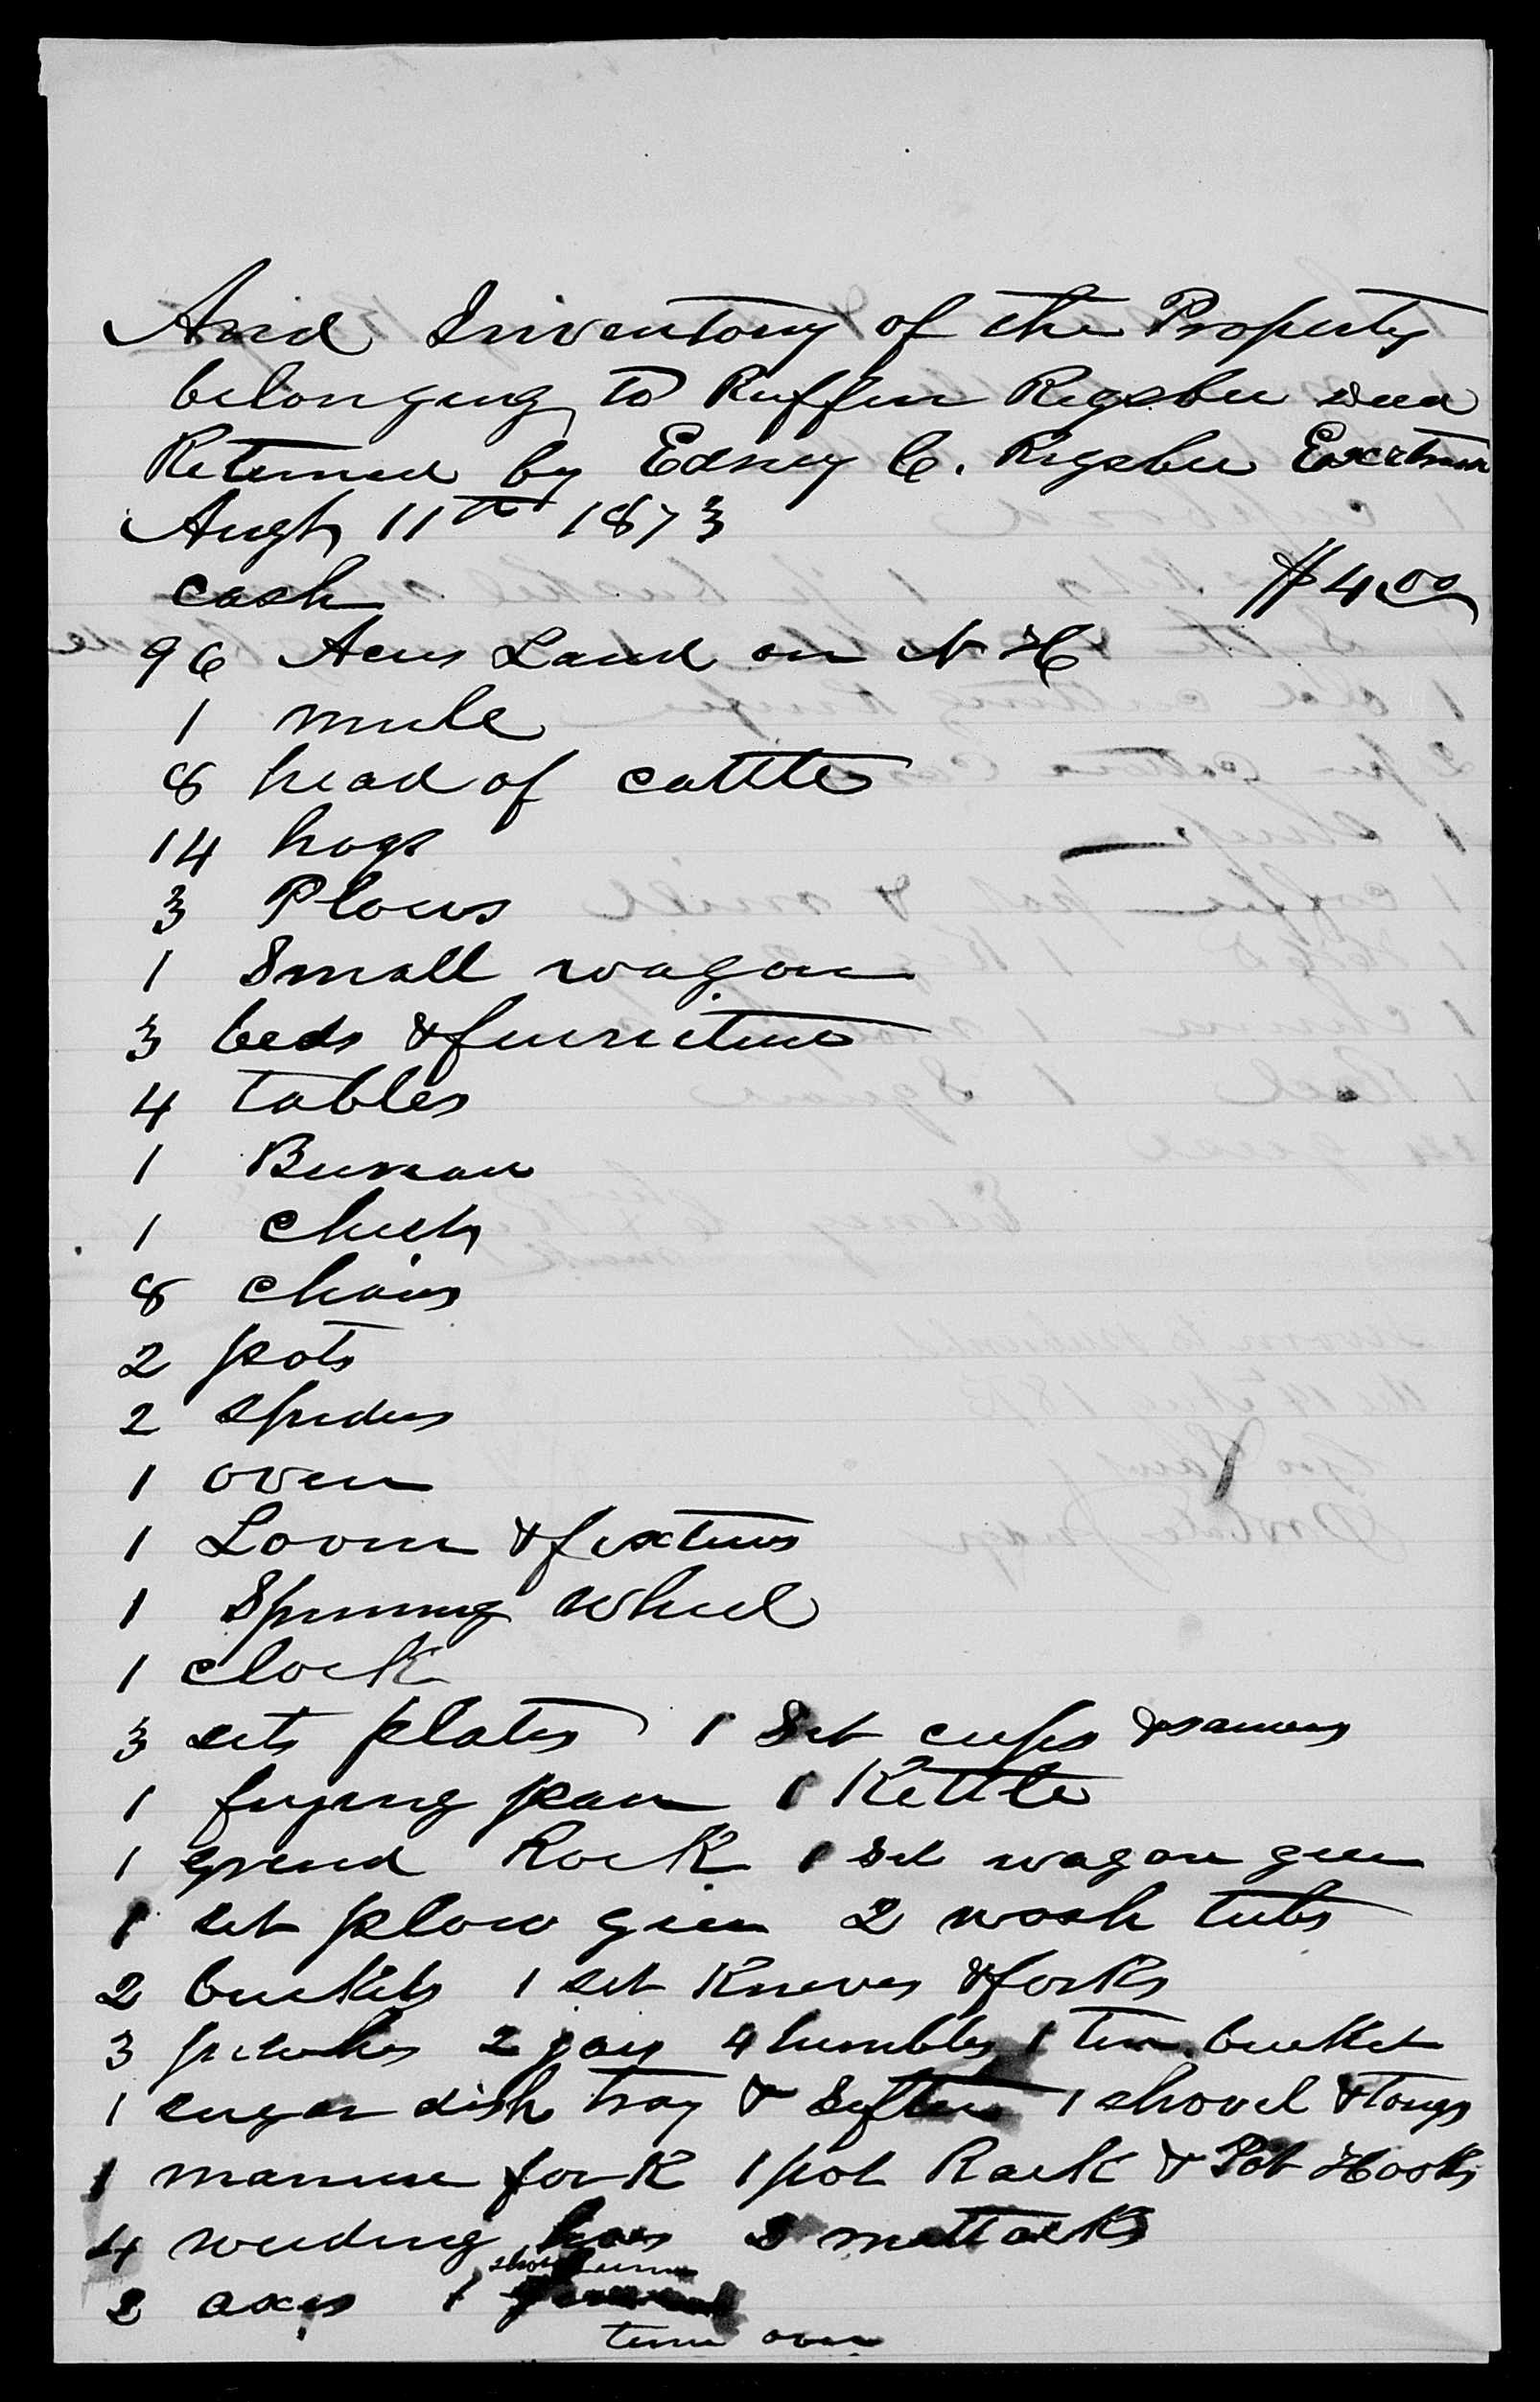 And Inventory of the Property
belonging to Ruffin Rigsbee decd
Returned by Edney C. Rigsbee Exectrix
Augt 11th 1873
cash $4.00
96 Acres Land on N H
1 mule
8 head of cattle
14 hogs
3 Plows
1 Small wagon
3 beds & furniture
4 tables
1 Bureau
1 Chest
8 chairs
2 pots
2 spiders
1 oven
1 Loom & fixtures
1 Spinning Wheel
1 clock
3 sets plates 1 Set cups & saucers
1 frying pan 1 Kettle
1 grind Rock 1 set wagon geer
1 set plow geer 2 wash tubs
2 buckets 1 set Knives & forks
3 pitchers 2 jars 4 tumblers 1 tin bucket
1 sugar dish tray & Sifter 1 shovel & tongs
1 manure fork 1 pot Rack & Pot Hooks
4 weeding hoes 3 mattocks
2 axes 1
turn over